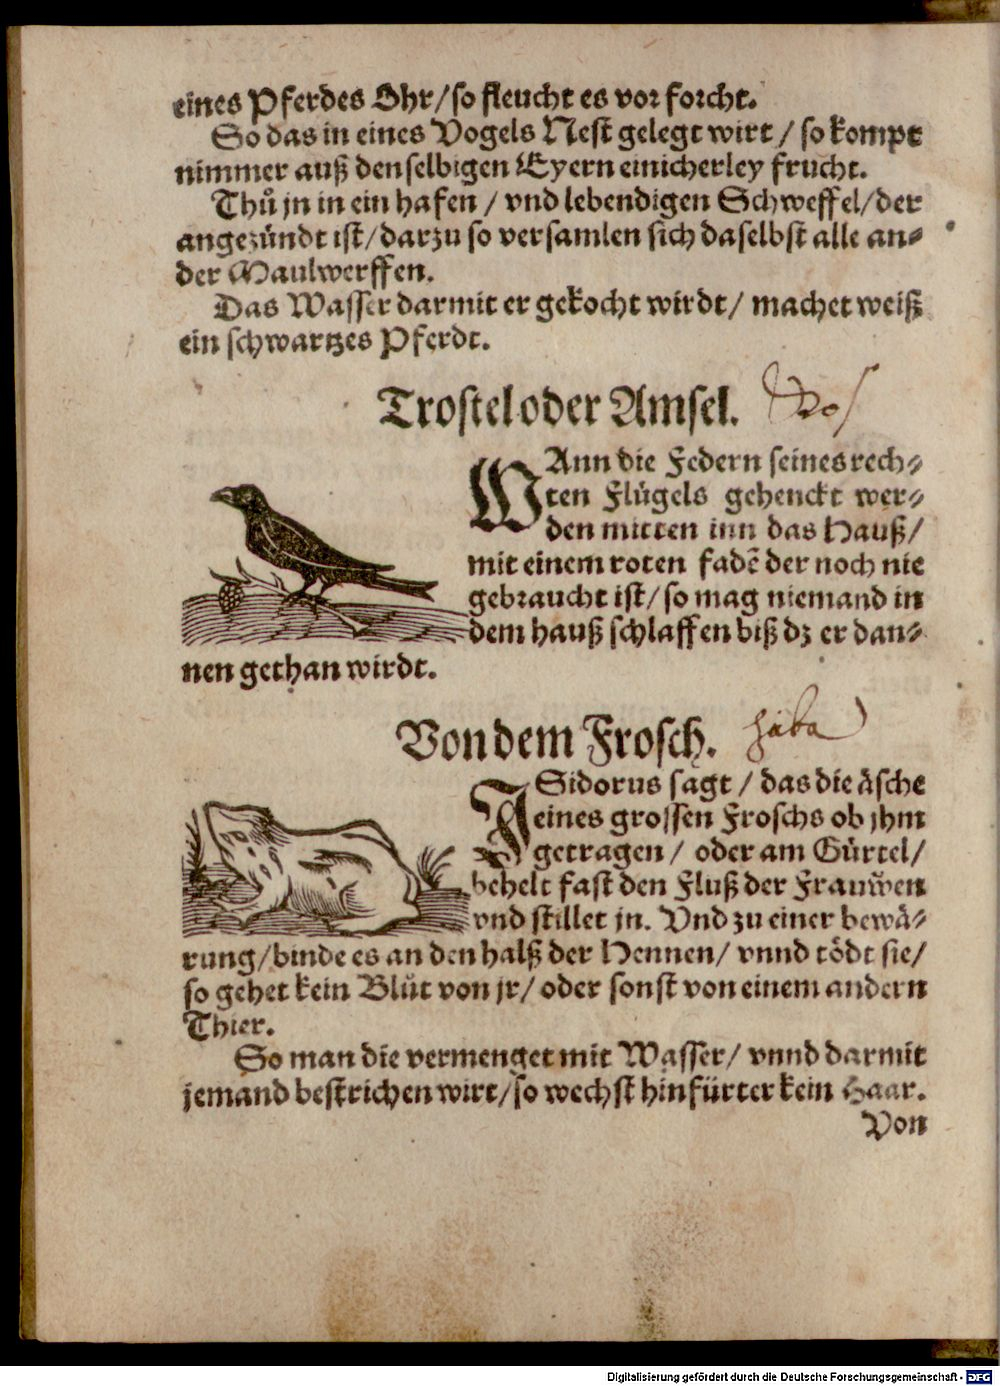 eines Pferdes Ohr/so fleucht es vor forcht.
So das in eines Vogels Nest gelegt wirt / so kompt
nimmer auß denselbigen Eyern einicherley frucht.
Thů jn in ein hafen / vnd lebendigen Schweffel/der
angezündt ist/darzu so versamlen sich daselbst alle an⸗
der Maulwerffen.
Das Wasser darmit er gekocht wirdt/ machet weiß
ein schwartzes Pferdt.
Trostel oder Amsel.
WAnn die Federn seines rech⸗
ten Flügels gehenckt wer⸗
den mitten inn das Hauß/
mit einem roten fadẽ der noch nie
gebraucht ist/ so mag niemand in
dem hauß schlaffen biß dz er dan⸗
nen gethan wirdt.
Von dem Frosch. žába
ISidorus sagt / das die äsche
eines grossen Froschs ob jhm
getragen/ oder am Gürtel/
behelt fast den Fluß der Frauwen
vnd stillet jn. Vnd zu einer bewä⸗
rung/binde es an den halß der Hennen/ vnnd tödt sie/
so gehet kein Blůt von jr/ oder sonst von einem andern
Thier.
So man die vermenget mit Wasser/ vnnd darmit
jemand bestrichen wirt/so wechst hinfürter kein Haar.
Von
Digitalisierung gefördert durch die Deutsche Forschungsgemeinschaft - DFG